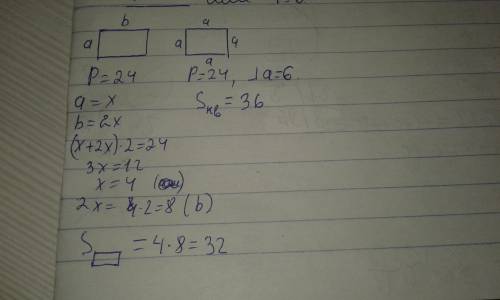 b
a
a
a
a
a
P=24
P=24, ⊥a=6
a=x
S кв = 36
b=2x
(x+2x)·2=24
3x=12
x=4
2x= 4·2=8 (b)
S▭ = 4·8=32